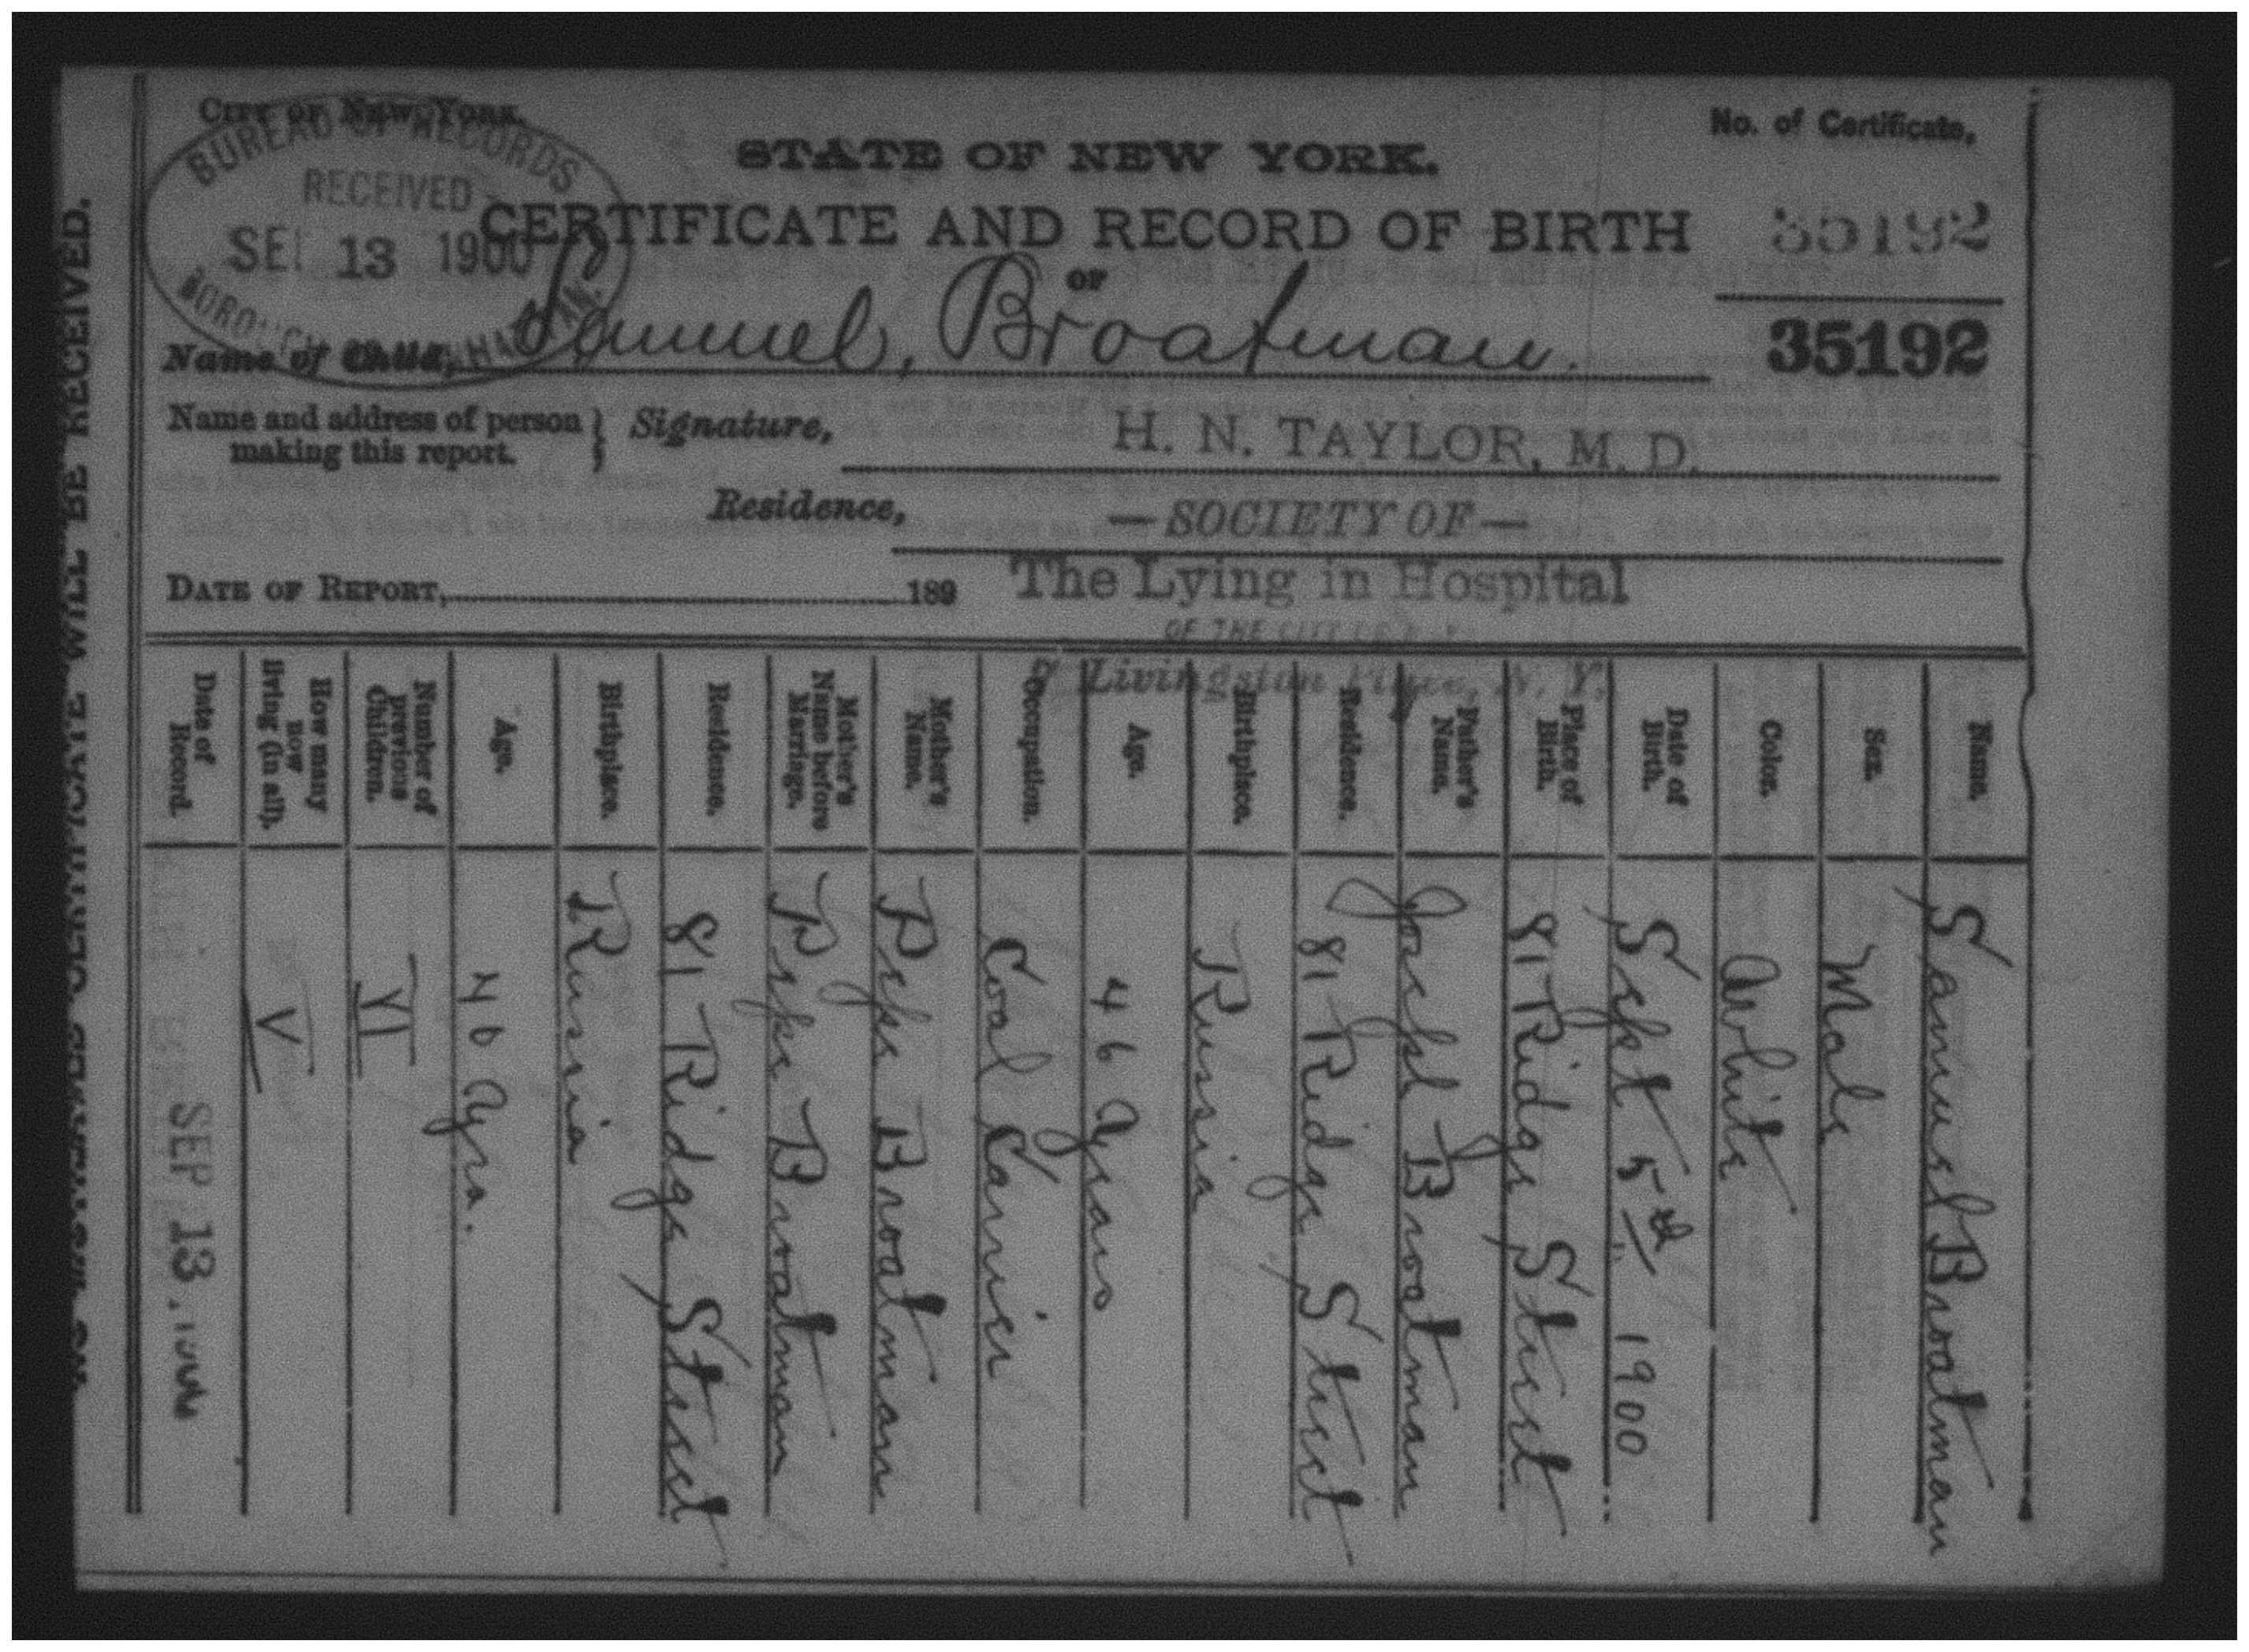 CITY OF NEW YORK.
BUREAU OF RECORDS
RECEIVED
SEP 13 1900
BOROUGH OF MANHATTAN.
No. of Certificate,
35192
35192
STATE OF NEW YORK.
CERTIFICATE AND RECORD OF BIRTH
OF
Name of Child, Samuel, Broatman.
Name and address of person making this report. } Signature, H. N. TAYLOR, M. D.
Residence, — SOCIETY OF —
DATE OF REPORT, 189 The Lying in Hospital
OF THE CITY OF N. Y.
7 Livingston Place, N. Y.
Name. Samuel Broatman
Sex. Male
Color. White
Date of Birth. Sept 5th 1900
Place of Birth. 81 Ridge Street
Father's Name. Joseph Broatman
Residence. 81 Ridge Street
Birthplace. Russia
Age. 46 years
Occupation. Coal Carrier
Mother's Name. Broatman
Mother's Name before Marriage. Broatman
Residence. 81 Ridge Street
Birthplace. Russia
Age. 46 yrs.
Number of previous Children. VI
How many now living (in all). V
Date of Record. SEP 13
CERTIFICATE WILL BE RECEIVED.